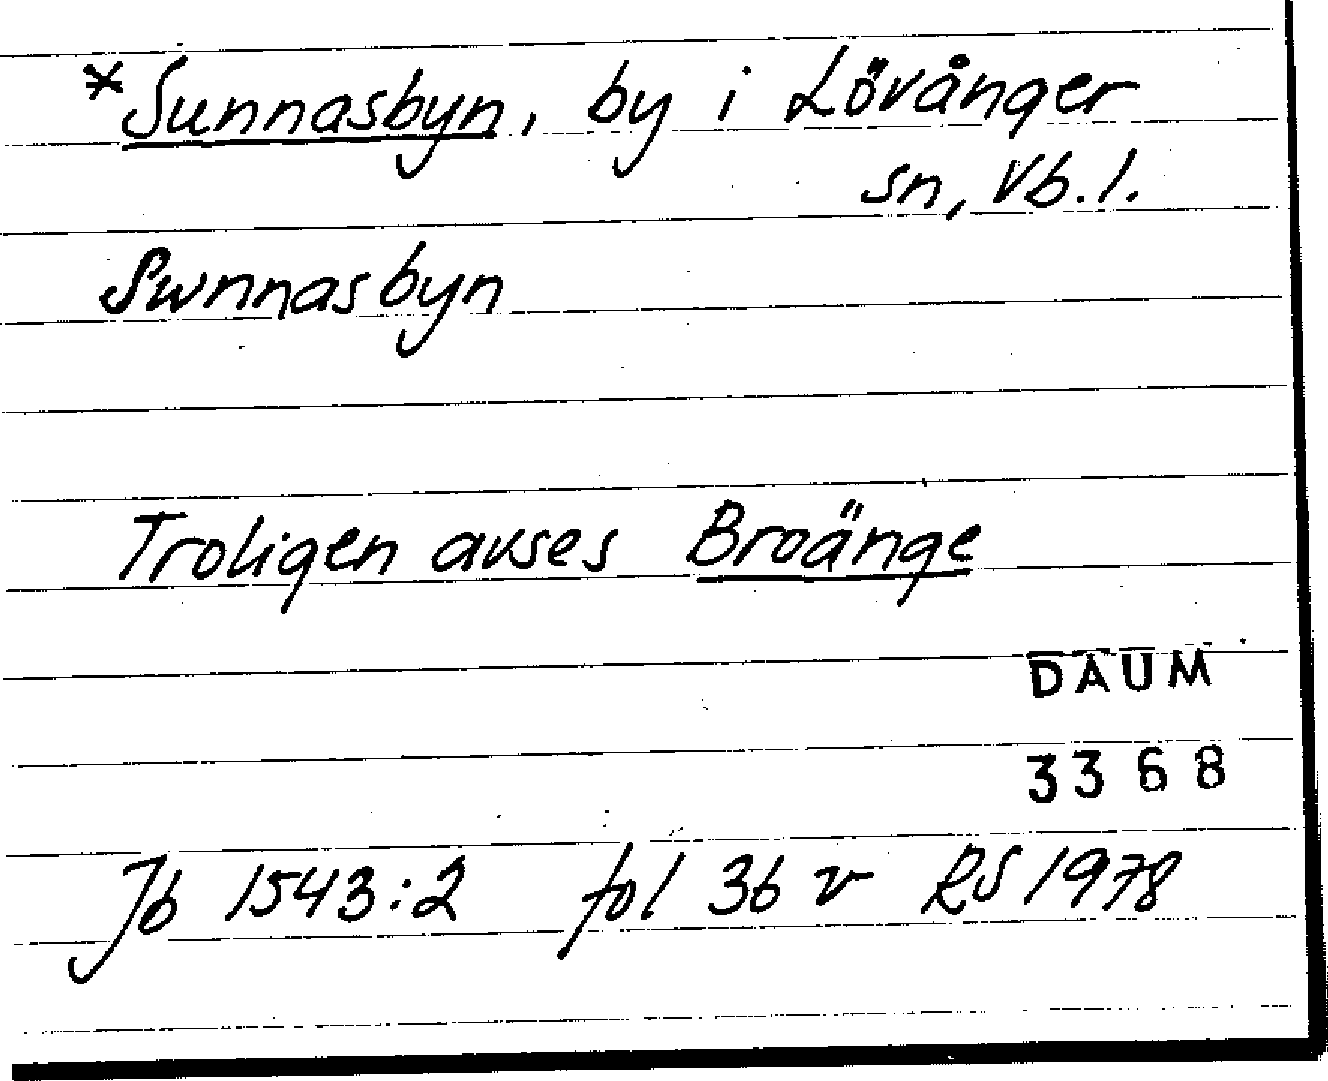 *Sunnasbyn, by i Lövånger
sn, Vb.l.
Swnnasbyn
Troligen avses Broänge
DAUM
3368
Jb 1543:2 fol 36 v RS 1978